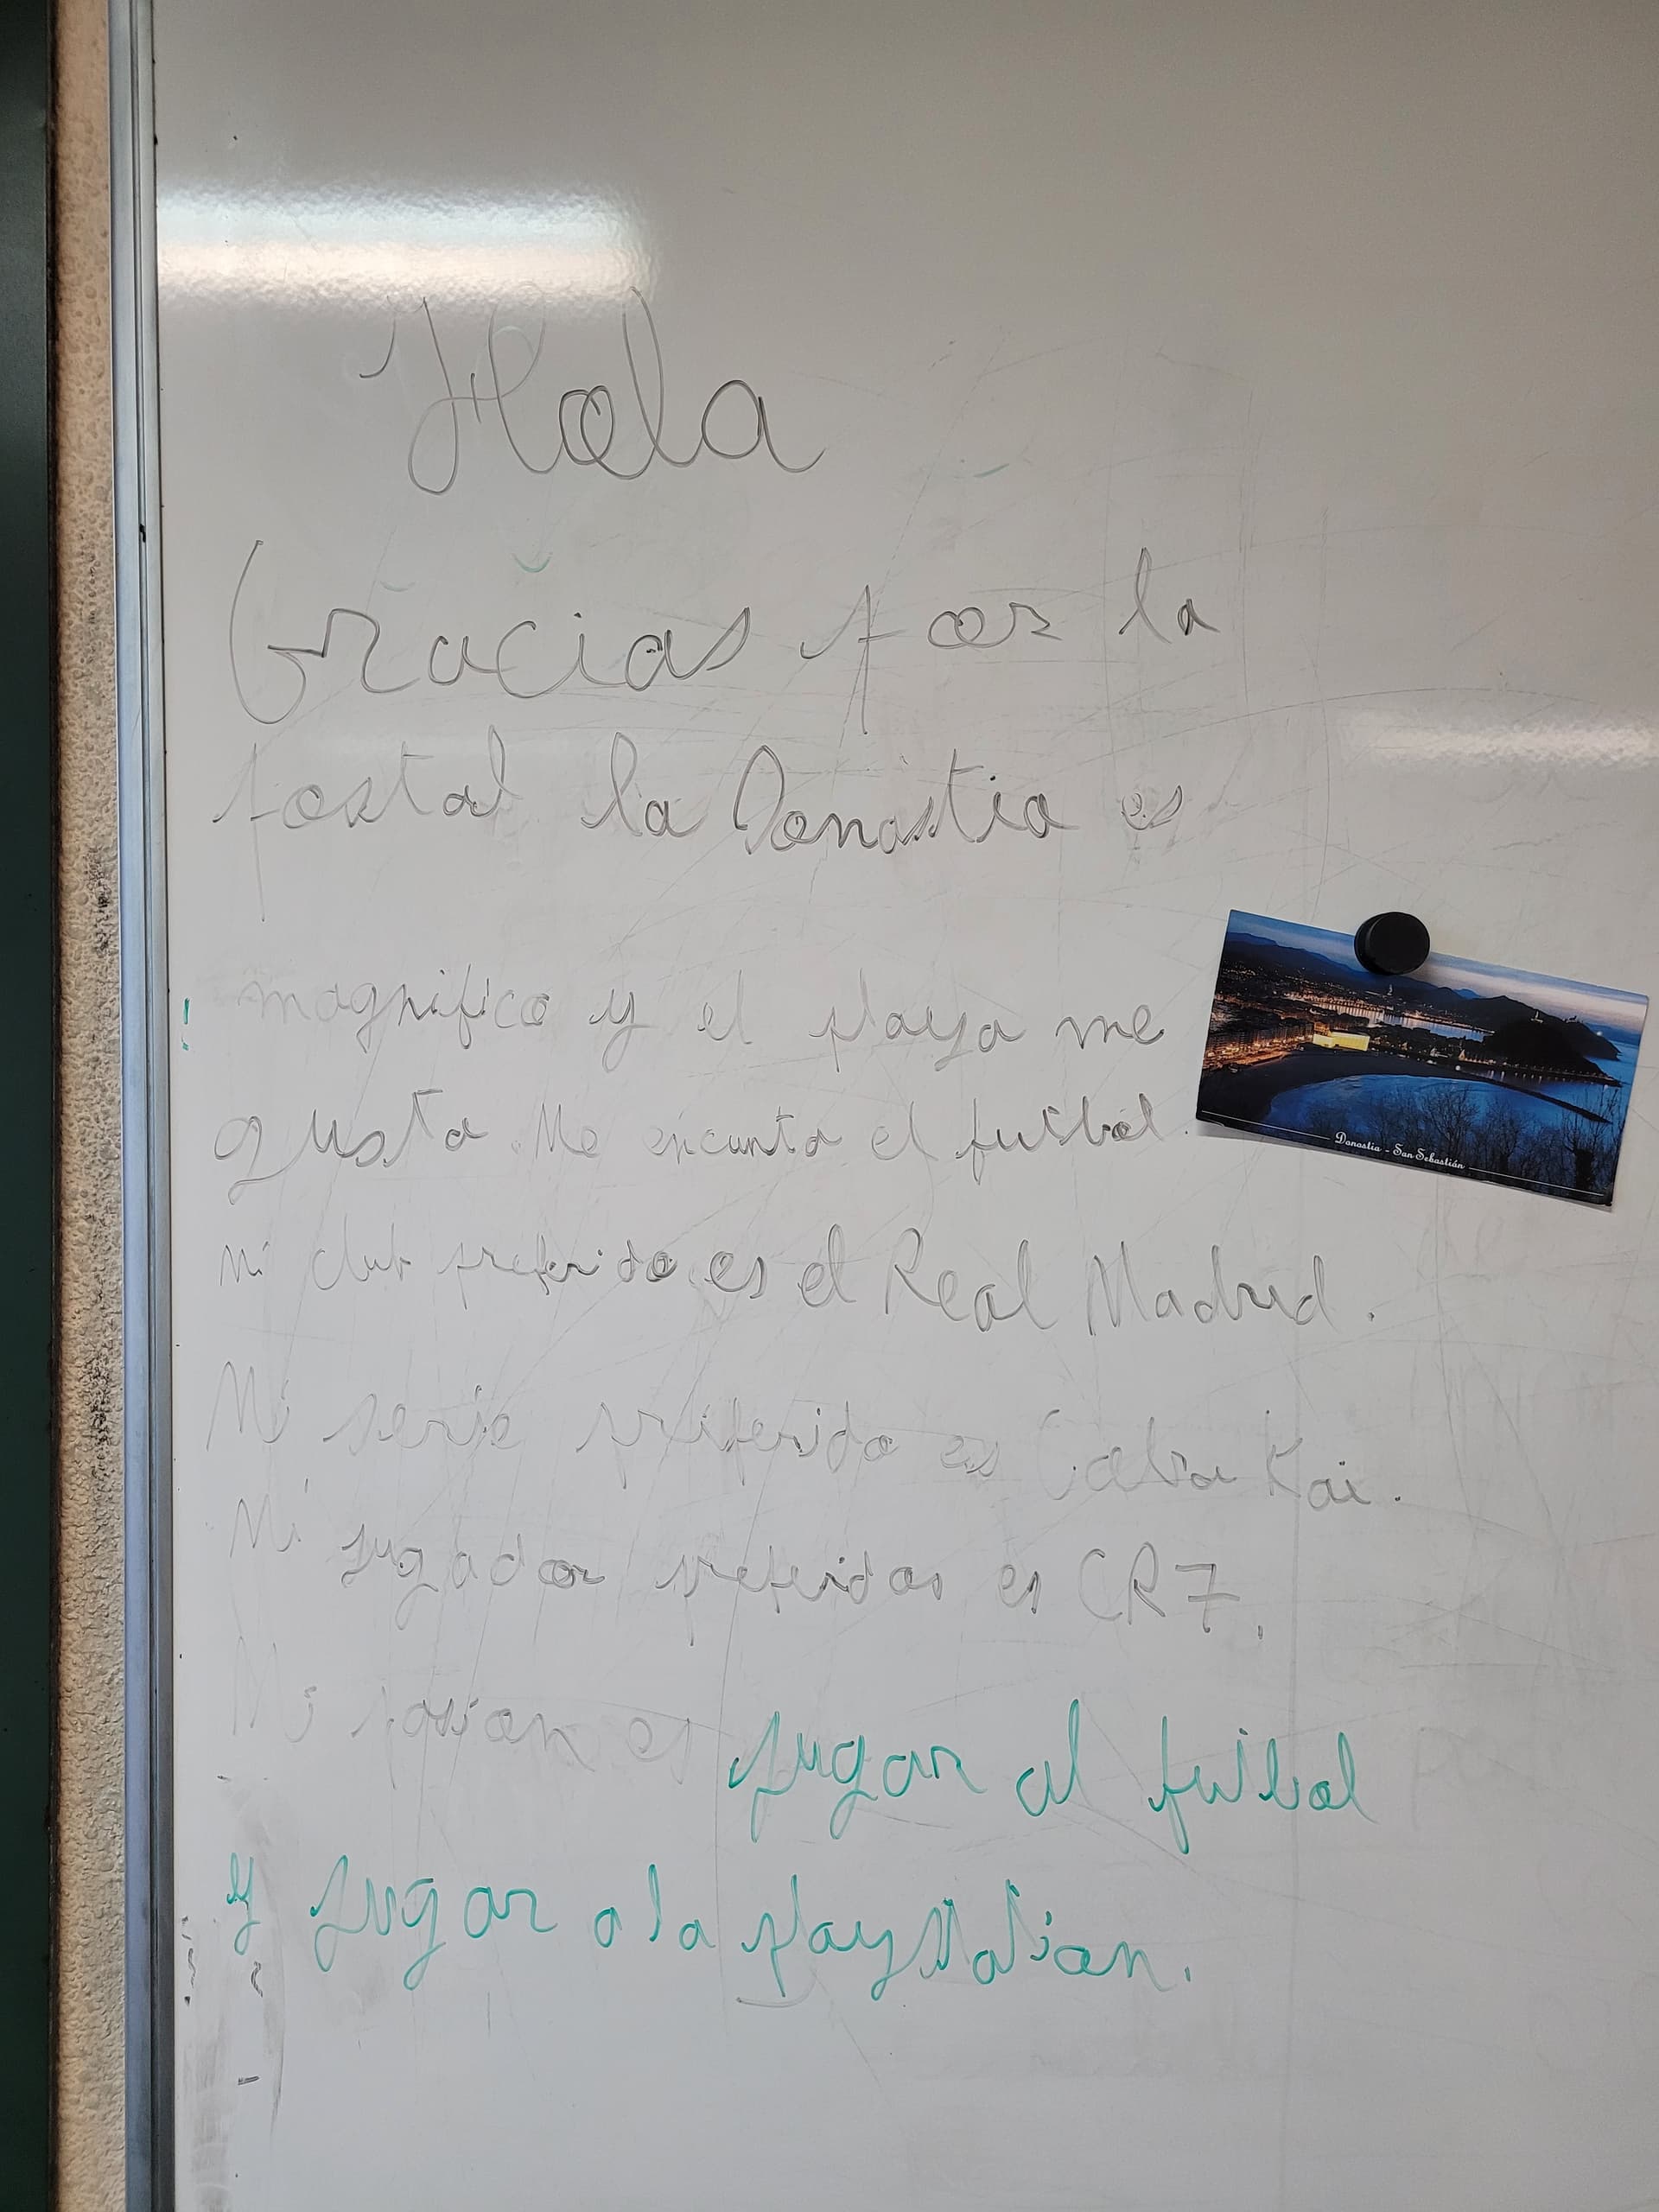 Hola
Gracias por la
postal la Donostia es
magnifico y el playa me
gusta. Me encanta el futbol.
Mi club preferido es el Real Madrid.
Mi serie preferida es Cobra Kai.
Mi jugador preferidos es CR7.
Mi pasion es jugar al futbol
y jugar a la playstation.
Donostia - San Sebastián